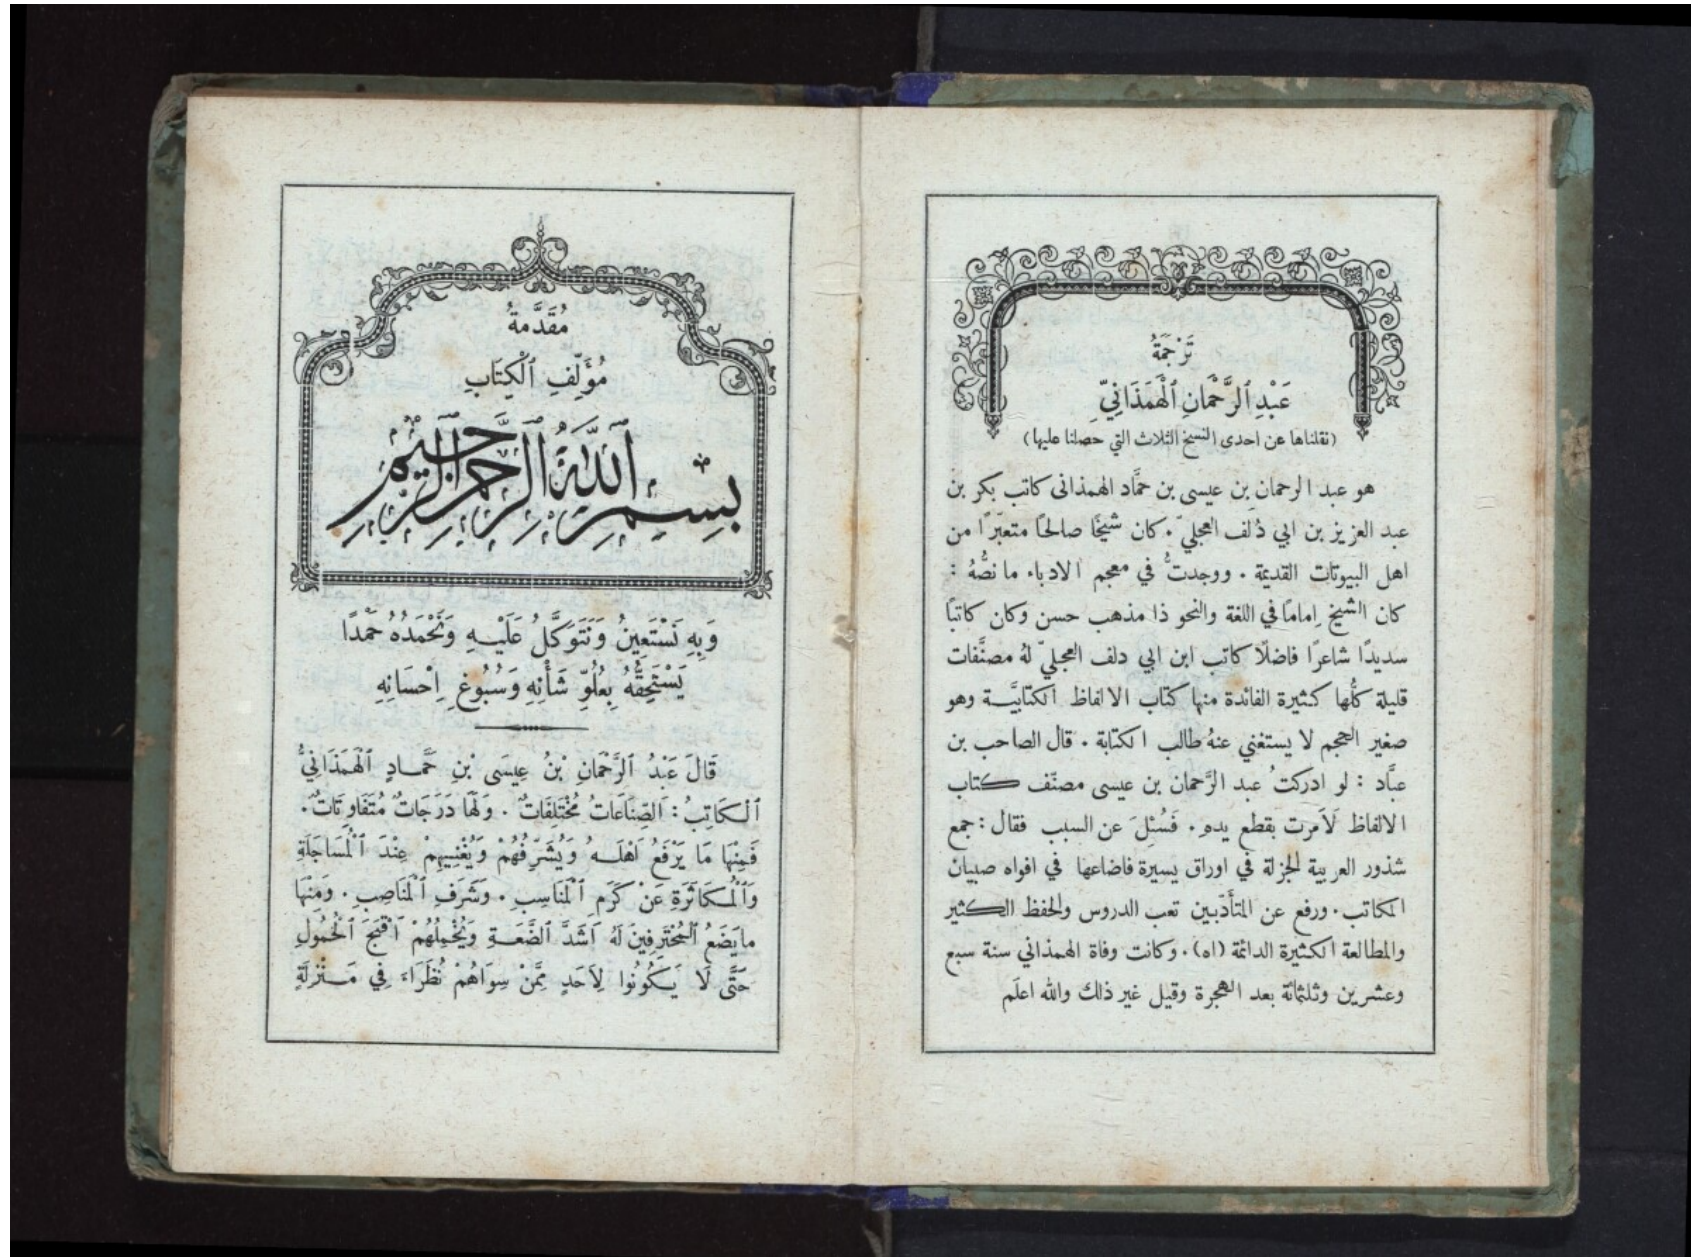 تَرْجَمَةُ
عَبْدِ ٱلرَّحْمَانِ ٱلْهَمَذَانِيِّ
(نقلناها عن احدى النسخ الثلاث التي حصلنا عليها)
هو عبد الرحمان بن عيسى بن حمَّاد الهمذانى كاتب بكر بن
عبد العزيز بن ابي دُلف العجليّ. كان شيخًا صالحًا متعبّرًا من
اهل البيوتات القديمة. ووجدتُ في معجم الادباء ما نصُّهُ:
كان الشيخ إِمامًا في اللغة والنحو ذا مذهب حسن وكان كاتبًا
سديدًا شاعرًا فاضلًا كاتب ابن ابي دلف العجليّ لهُ مصنَّفات
قليلة كلُّها كثيرة الفائدة منها كتاب الالفاظ الكتابيَّة وهو
صغير الحجم لا يستغني عنهُ طالب الكتابة. قال الصاحب بن
عبَّاد: لو ادركتُ عبد الرَّحمان بن عيسى مصنّف كتاب
الالفاظ لَأمرت بقطع يدهِ. فَسُئِلَ عن السبب فقال: جمع
شذور العربية الجزلة في اوراق يسيرة فاضاعها في افواه صبيان
المكاتب. ورفع عن المتأَدّبين تعب الدروس والحفظ الكثير
والمطالعة الكثيرة الدائمة (اه). وكانت وفاة الهمذاني سنة سبع
وعشرين وثلثمائة بعد الهجرة وقيل غير ذلك والله اعلَم
مُقَدَّمةُ
مُؤَلِّفِ ٱلْكِتَابِ
بِسْمِ ٱللهِ ٱلرَّحْمٰنِ ٱلرَّحِيمِ
وَبِهِ نَسْتَعِينُ وَنَتَوَكَّلُ عَلَيْهِ وَنَحْمَدُهُ حَمْدًا
يَسْتَحِقُّهُ بِعُلُوِّ شَأْنِهِ وَسُبُوغِ إِحْسَانِهِ
قَالَ عَبْدُ ٱلرَّحْمَانِ بْنُ عِيسَى بْنِ حَمَّادٍ ٱلْهَمَذَانِيُّ
ٱلْكَاتِبُ: اَلصِّنَاعَاتُ مُخْتَلِفَاتٌ. وَلَهَا دَرَجَاتٌ مُتَفَاوِتَاتٌ.
فَمِنْهَا مَا يَرْفَعُ اَهْلَهُ وَيُشَرِّفُهُمْ وَيُغْنِيهِمْ عِنْدَ ٱلْمُسَاجَلَةِ
وَٱلْمُكَاثَرَةِ عَنْ كَرَمِ ٱلْمَنَاسِبِ. وَشَرَفِ ٱلْمَنَاصِبِ. وَمِنْهَا
مَا يَضَعُ ٱلْمُحْتَرِفِينَ لَهُ اَشَدَّ ٱلضَّعَةِ وَيُخْمِلُهُمْ اَقْبَحَ ٱلْخُمُولِ
حَتَّى لَا يَكُونُوا لِأَحَدٍ مِمَّنْ سِوَاهُمْ نُظَرَاءَ فِي مَنْزِلَةٍ